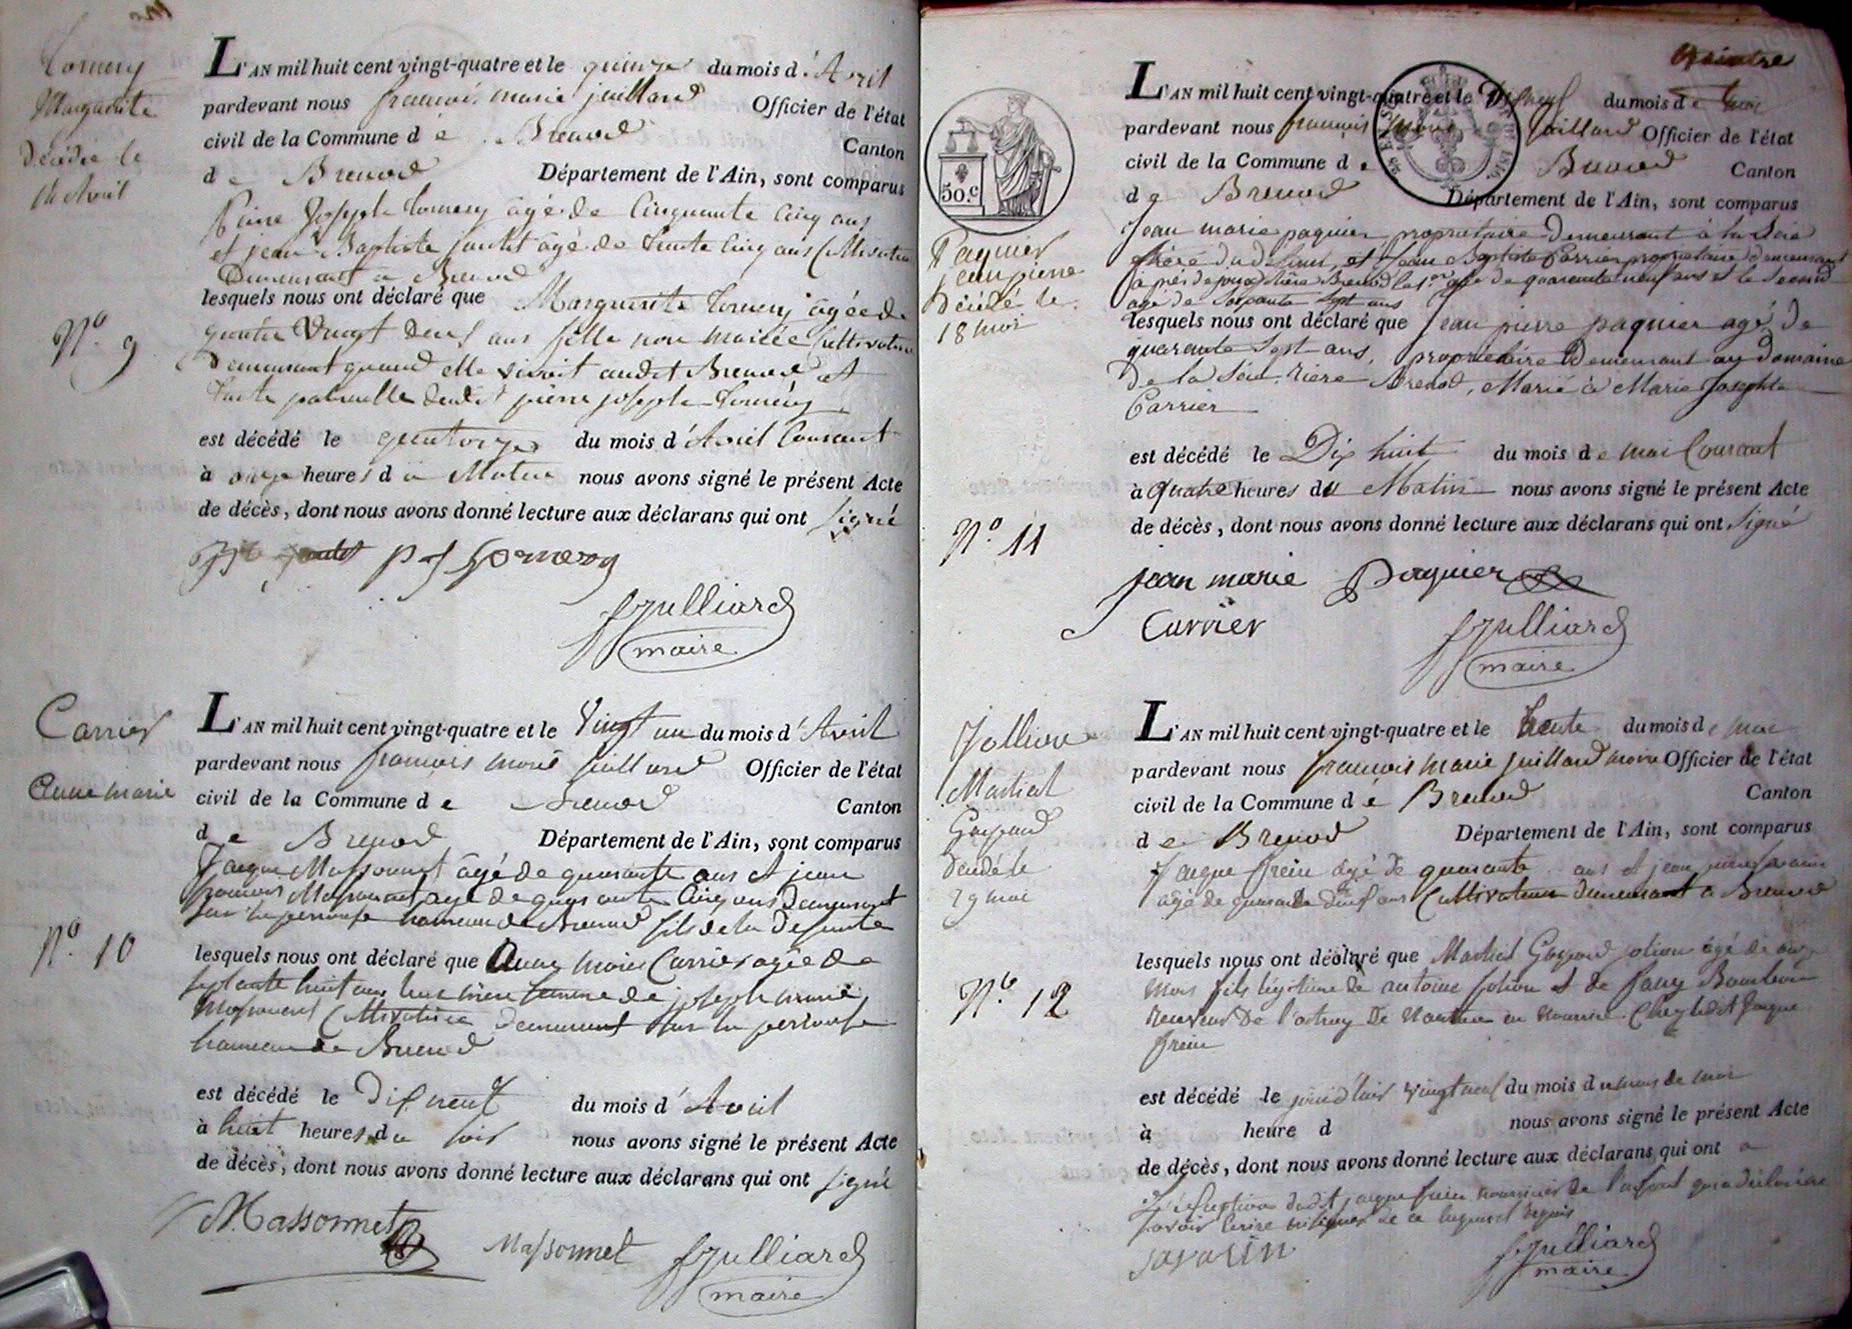 Tornery
Marguerite
Décédée le
14 Avril
N.° 9
L'AN mil huit cent vingt-quatre et le quinze du mois d'Avril
pardevant nous françois marie juilliard Officier de l'état
civil de la Commune de Brenod Canton
de Brenod Département de l'Ain, sont comparus
Pierre Joseph Tornery âgé de Cinquante Cinq ans
et jean Baptiste jantet âgé de trente Cinq ans Cultivateurs
Demeurant a Brenod
lesquels nous ont déclaré que Marguerite Tornery âgée de
quatre Vingt Deux ans fille non mariée Cultivatrice
Demeurant quand elle vivoit audit Brenod et
tante paternelle dudit pierre joseph Tornery
est décédé le quatorze du mois d'Avril Courant
à onze heures du Matin nous avons signé le présent Acte
de décès, dont nous avons donné lecture aux déclarans qui ont signé
p J Tornery
fJulliard
maire
Carrier
Anne marie
N.° 10
L'AN mil huit cent vingt-quatre et le Vingt un du mois d'Avril
pardevant nous françois marie juilliard Officier de l'état
civil de la Commune de Brenod Canton
de Brenod Département de l'Ain, sont comparus
Jaque Massonnet âgé de quarante ans et jean
françois Massonnet age de quarante Cinq ans Demeurant
sur la perouse hameau de Brenod fils de la Defunte
lesquels nous ont déclaré que Anne Marie Carrier agée de
septante huit ans leur mère femme de joseph marie
Massonnet Cultivatrice Demeurant sur la perouse
hameau de Brenod
est décédé le Dix neuf du mois d'Avril
à huit heures du soir nous avons signé le présent Acte
de décès, dont nous avons donné lecture aux déclarans qui ont signé
Massonnet
Massonnet fJulliard
maire
50.c
Paquier
jean pierre
Décédé le
18 mai
N.° 11
L'AN mil huit cent vingt-quatre et le Dix neuf du mois de mai
pardevant nous françois marie juilliard Officier de l'état
civil de la Commune de Brenod Canton
de Brenod Département de l'Ain, sont comparus
Jean marie paquier proprietaire Demeurant à la Scie
frère du defunt, et Jean Baptiste Carrier proprietaire demeurant
Brenod le 1er agé de quarante neuf ans et le second
agé de soixante sept ans
lesquels nous ont déclaré que Jean pierre paquier agé de
quarante sept ans, proprietaire Demeurant au Domaine
De la Scie, rière Brenod, Marié à Marie Josephte
Carrier
est décédé le Dix huit du mois de mai Courant
à quatre heures du Matin nous avons signé le présent Acte
de décès, dont nous avons donné lecture aux déclarans qui ont signé
jean marie paquier
Carrier fJulliard
maire
Jollion
Martial
Gaspard
Décédé le
29 mai
N.° 12
L'AN mil huit cent vingt-quatre et le trente du mois de mai
pardevant nous françois marie juilliard maire Officier de l'état
civil de la Commune de Brenod Canton
de Brenod Département de l'Ain, sont comparus
Jaque frein agé de quarante ans et jean pierre savarin
agé de quarante Deux ans Cultivateurs demeurant a Brenod
lesquels nous ont déclaré que Martial Gaspard jolion âgé de onze
mois fils légitime de antoine jolion et de
Receveur De l'octroy De Nantua en nourrice Chez ledit Jaque
frein
est décédé le jour d'hier vingt neuf du mois de mai
à heure d nous avons signé le présent Acte
de décès, dont nous avons donné lecture aux déclarans qui ont
à l'exception dudit jaque frein nourricier de l'enfant qui a déclaré ne
savoir écrire ni signer de ce enquis et requis
savarin fJulliard
maire